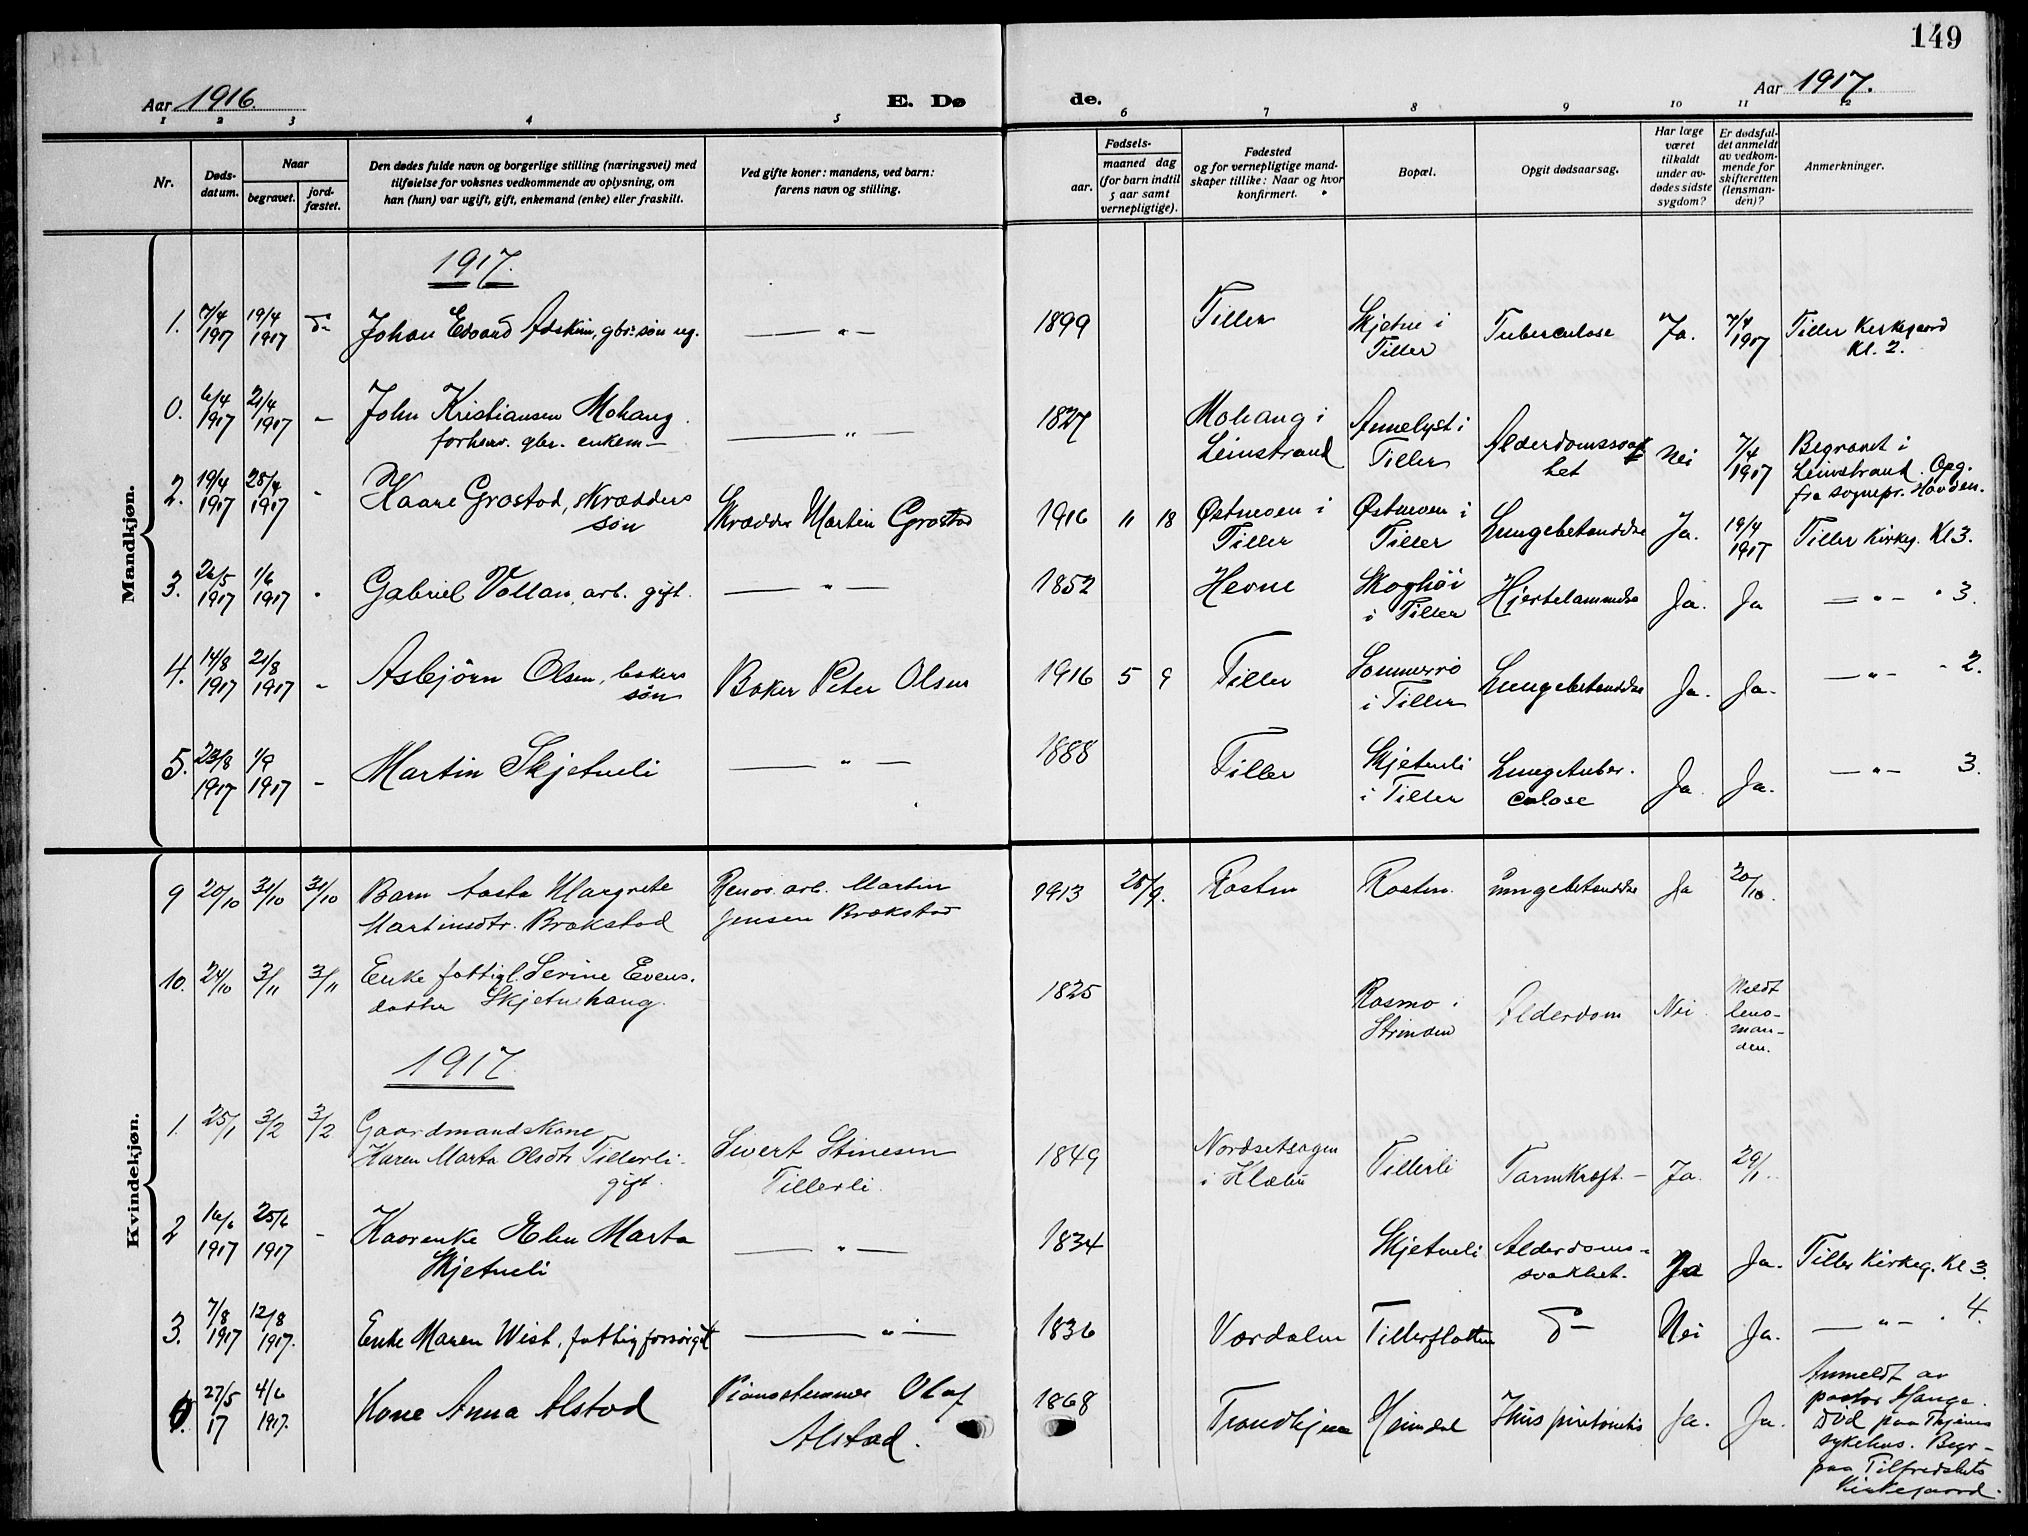 149
Aar 1916.
E. Dø
de.
Aar 1917.
1 2 3 4 5 6 7 8 9 10 11 12
Nr.
Døds-
datum.
Naar
begravet.
jord-
fæstet.
Den dødes fulde navn og borgerlige stilling (næringsvei) med
tilføielse for voksnes vedkommende av oplysning, om
han (hun) var ugift, gift, enkemand (enke) eller fraskilt.
Ved gifte koner: mandens, ved barn:
farens navn og stilling.
Fødsels-
aar.
maaned dag
(for barn indtil
5 aar samt
vernepligtige).
Fødested
og for vernepligtige mand-
skaper tillike: Naar og hvor
konfirmert.
Bopæl.
Opgit dødsaarsag.
Har læge
været
tilkaldt
under av-
dødes sidste
sygdom?
Er dødsfal-
det anmeldt
av vedkom-
mende for
skifteretten
(lensman-
den)?
Anmerkninger.
Mandkjøn.
1917.
1. 7/4 1917 19/4 1917 Johan Edvard, gbr. søn ug. — " — 1899 Tiller Skjetne i Tiller Tuberculose Ja. 7/4 1917 Tiller Kirkegaard Kl. 2.
0. 6/4 1917 21/4 1917 – John Kristiansen Mohaug forhenv. gbr. enkem— — " — 1827 Mohaug i Leinstrand Annelyst i Tiller Alderdomssvakhet Nei 7/4 1917 Begravet i Leinstrand. Opg. fra sognepr. Hovden.
2. 19/4 1917 28/4 1917 - Kaare Grøstad, skrædders søn Skrædder Martin Grøstad 1916 11 18 Østmoen i Tiller Østmoen i Tiller Lungebetændelse Ja. 19/4 1917 Tiller Kirkeg. Kl 3.
3. 26/5 1917 1/6 1917 - Gabriel Vollan, arb. gift. — " — 1852 Hevne Skoghøi i Tiller Hjertelammelse Ja. Ja — " — " 3.
4. 14/8 1917 21/8 1917 - Asbjørn Olsen, bakers søn Baker Peter Olsen 1916 5 9 Tiller Sommerro i Tiller Lungebetændelse Ja. Ja. — " — " 2.
5. 23/8 1917 1/9 1917 - Martin Skjetneli — " — 1888 Tiller Skjetneli i Tiller Lungetuberculose Ja Ja. — " — 3.
Kvindekjøn.
9 20/10 31/10 31/10 Barn Aasta Margrete Martinsdtr. Brækstad Renov. arb. Martin Jensen Brækstad 1913 25/9. Rosten Rosten. Lungebetændelse Ja 20/10.
10. 24/10 3/11 3/11 Enke fattigl. Serine Evens. datter Skjetnehaug. 1825 Rosmo i Strinden Alderdom Nei Meldt lens-man-den.
1917.
1. 25/1 3/2 3/2 Gaardmandskone Karen Marta Olsdtr Tillerli. gift. Sivert Stinesen Tillerli. 1849 Nordsetsagen i Klæbu Tillerli Tarmkræft. – Ja. 29/1.
2 16/6 1917 25/6 1917 - Kaarenke Elen Marta Skjetneli — " — 1834 Skjetneli Alderdoms-svakhet. Ja Ja. Tiller Kirkeg. Kl 3.
3. 7/8 1917 12/8 1917. Enke Maren Wist, fattigforsørget — " — 1836 Værdalen Tillerflatten Nei Ja. — " — " 4.
0. 27/5 17 4/6 1917. Kone Anna Alstad Pianostemmer Olaf Alstad. 1868 Trondhjem Heimdal Ja. Ja. Anmeldt av pastor Hauge. Død paa Thjems sykehus. Begr– paa Tilfredshets Kirkegaard.